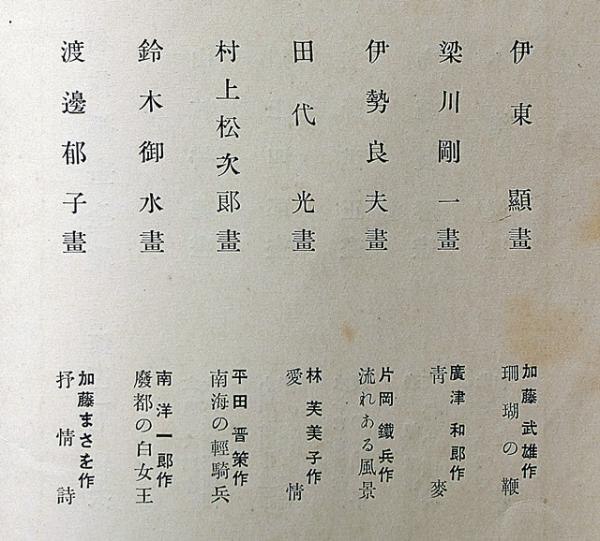 伊東顯畫
加藤武雄作
珊瑚の鞭
梁川剛一畫
廣津和郎作
靑麥
伊勢良夫畫
片岡鐵兵作
流れある風景
田代光畫
林芙美子作
愛情
村上松次郞畫
平田晋策作
南海の輕騎兵
鈴木御水畫
南洋一郞作
廢都の白女王
渡邊郁子畫
加藤まさを作
抒情詩